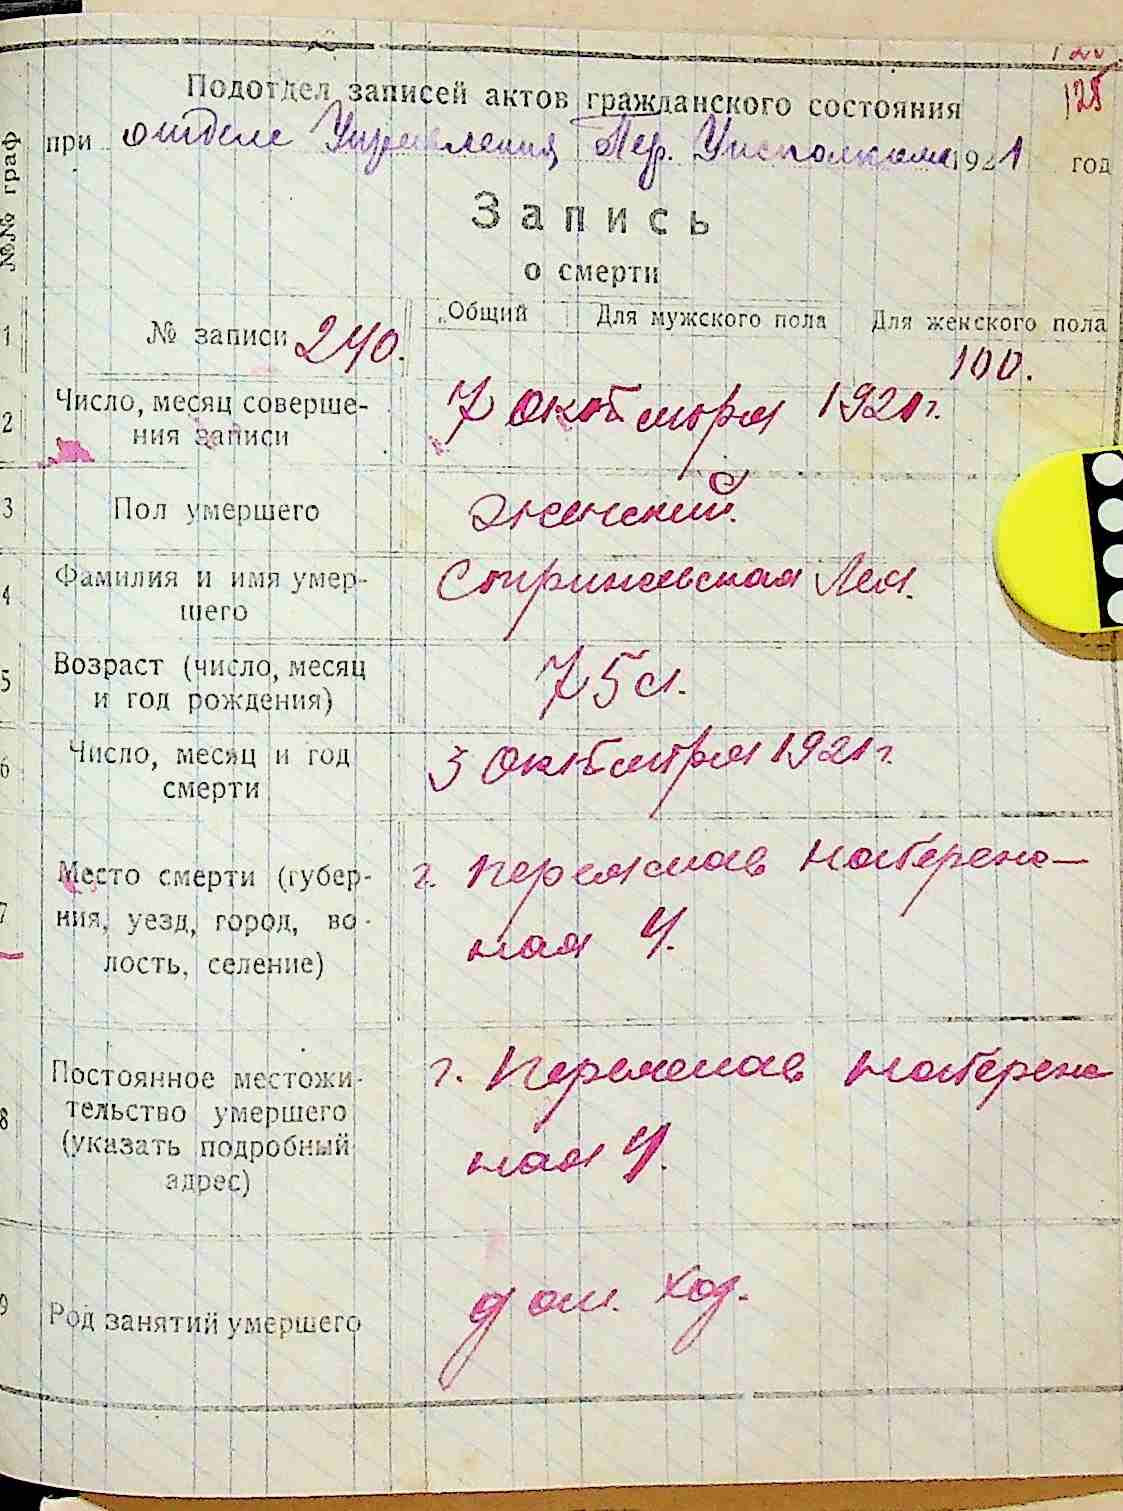 125
Подотдел записей актов гражданского состояния
при отделе Управления Пер. Уисполкома 1921 год
№№ граф
Запись
о смерти
Общий Для мужского пола Для женского пола
1 № записи 240. 100.
2 Число, месяц соверше-
ния записи 7 Октября 1921 г.
3 Пол умершего женский.
4 Фамилия и имя умер-
шего Лея.
5 Возраст (число, месяц
и год рождения) 75 л.
6 Число, месяц и год
смерти 3 Октября 1921 г.
7 Место смерти (губер- г. Переяслав Набереж-
ния, уезд, город, во- ная 4.
лость, селение)
8 Постоянное местожи- г. Переяслав Набереж
тельство умершего
(указать подробный ная 4.
адрес)
9 Род занятий умершего дом. хоз.